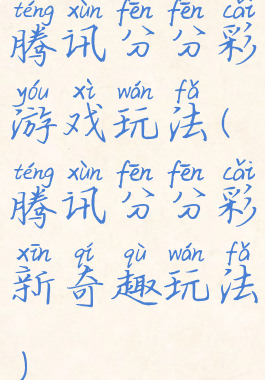 téng xùn fēn fēn cǎi
腾讯分分彩
yóu xì wán fǎ
游戏玩法(
téng xùn fēn fēn cǎi
腾讯分分彩
xīn qí qù wán fǎ
新奇趣玩法
)